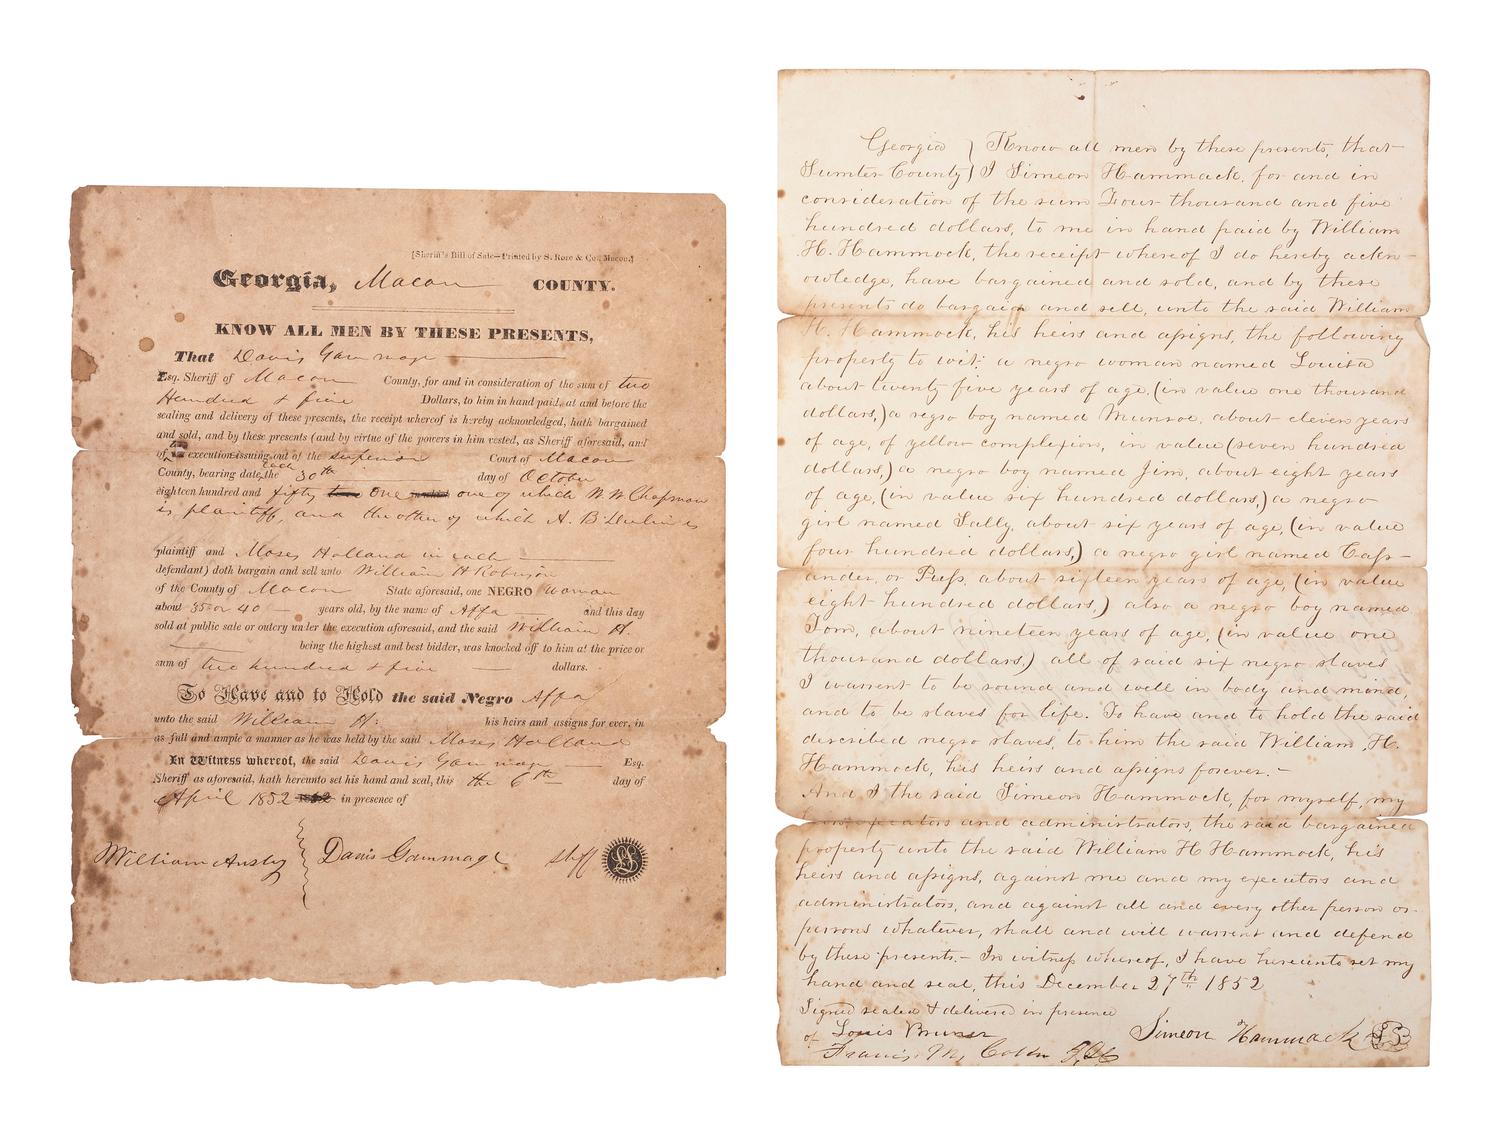 [Sheriff's Bill of Sale—Printed by S. Rose & Co., Macon.]
Georgia, Macon COUNTY.
KNOW ALL MEN BY THESE PRESENTS,
That Davis Gammage
Esq. Sheriff of Macon County, for and in consideration of the sum of two
Hundred & five Dollars, to him in hand paid, at and before the
sealing and delivery of these presents, the receipt whereof is hereby acknowledged, hath bargained
and sold, and by these presents (and by virtue of the powers in him vested, as Sheriff aforesaid, and
of execution issuing out of the superior Court of Macon
County, bearing date each the 30th day of October
eighteen hundred and fifty One one of which W W Chapman
is plaintiff, and the other of which A. B. is
plaintiff and Moses Holland in each
defendant) doth bargain and sell unto William H Robinson
of the County of Macon State aforesaid, one NEGRO woman
about 35 or 40 years old, by the name of Affa and this day
sold at public sale or outcry under the execution aforesaid, and the said William H.
being the highest and best bidder, was knocked off to him at the price or
sum of two hundred & five dollars.
To Have and to Hold the said Negro Affa
unto the said William H: his heirs and assigns for ever, in
as full and ample a manner as he was held by the said Moses Holland
In Witness whereof, the said Davis Gammage Esq.
Sheriff as aforesaid, hath hereunto set his hand and seal, this the 6th day of
April 1852 in presence of
William Ansly Davis Gammage Shff LS
Georgia } Know all men by these presents, that
Sumter County } I Simeon Hammack, for and in
consideration of the sum Four thousand and five
hundred dollars, to me in hand paid by William
H. Hammock, the receipt whereof I do hereby ackn-
owledge, have bargained and sold, and by these
presents do bargain and sell, unto the said William
H. Hammock, his heirs and assigns, the following
property to wit: a negro woman named Louisa
about twenty five years of age, (in value one thousand
dollars,) a negro boy named Munroe, about eleven years
of age, of yellow complexion, in value (seven hundred
dollars,) a negro boy named Jim, about eight years
of age, (in value six hundred dollars,) a negro
girl named Sally, about six years of age, (in value
four hundred dollars,) a negro girl named Cass-
ander, or Puss, about sixteen years of age, (in value
eight hundred dollars,) also a negro boy named
Tom, about nineteen years of age, (in value one
thousand dollars.) all of said six negro slaves
I warrent to be sound and well in body and mind,
and to be slaves for life. To have and to hold the said
described negro slaves, to him the said William, H.
Hammock, his heirs and assigns forever.-
And I the said Simeon Hammock, for myself, my
and administrators, the said bargained
property unto the said William H Hammock, his
heirs and assigns, against me and my executors and
administrators, and against all and every other person or
persons whatever, shall and will warrent and defend
by these presents.- In witness whereof, I have hereunto set my
hand and seal, this December 27th 1852
Signed sealed & delivered in presence
of Louis Bruner Simeon Hammack LS
Francis M,